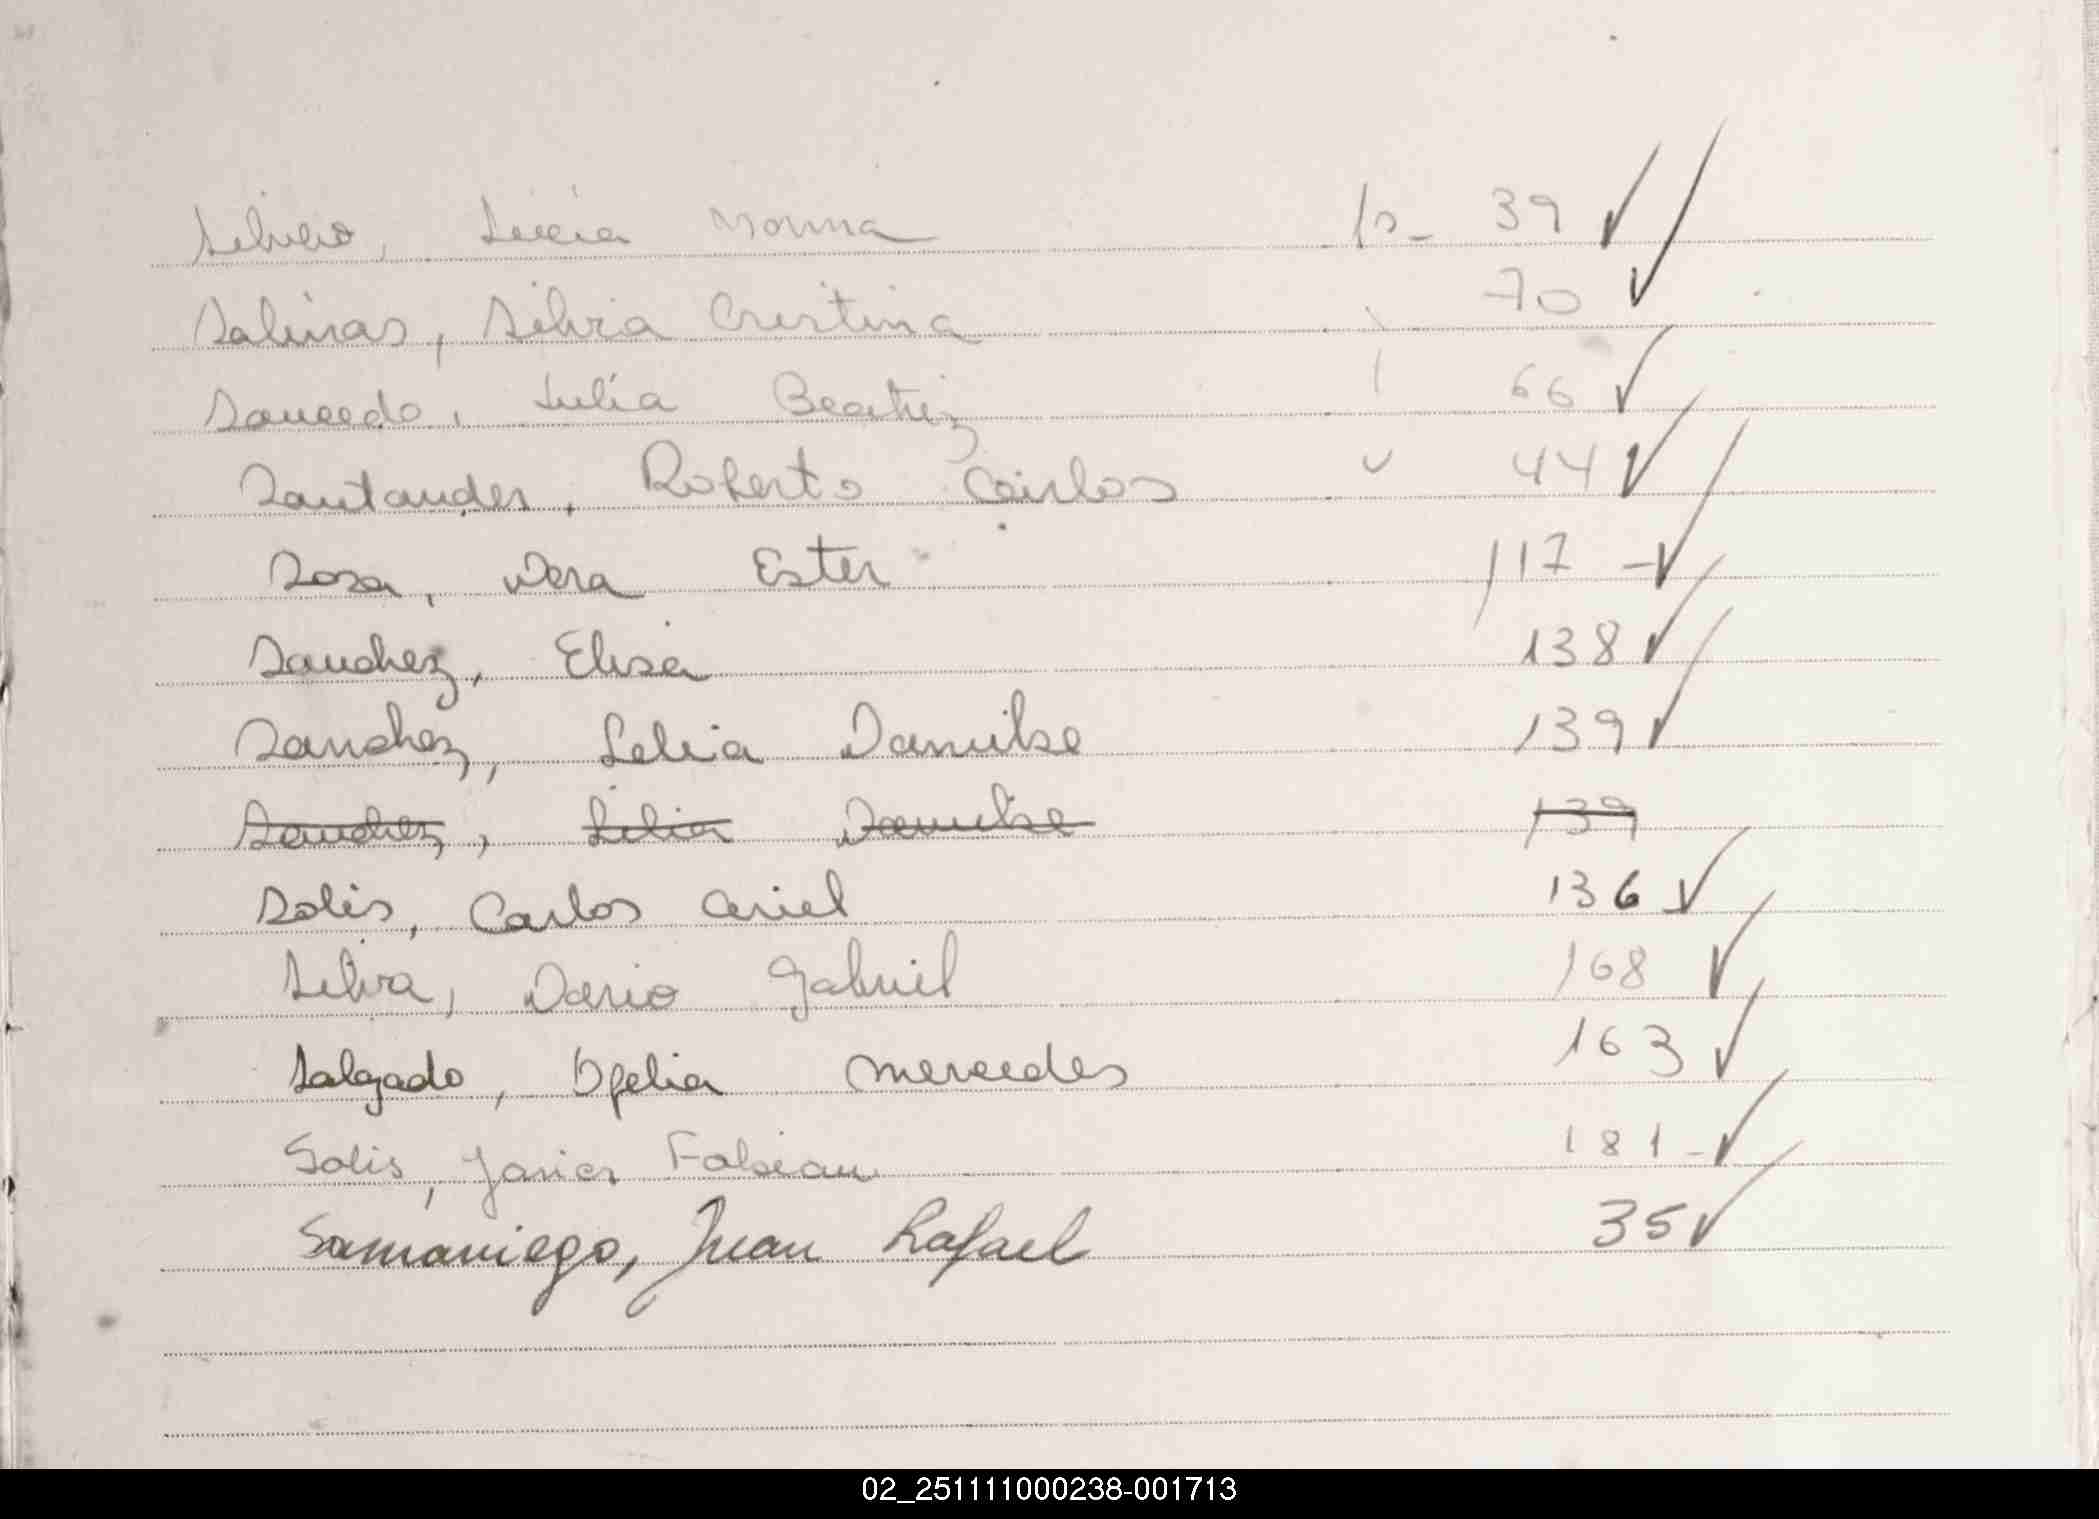 Silvero, Lucia Norma fs- 39 ✓
Salinas, Silvia Cristina 70 ✓
Saucedo, Julia Beatriz 66 ✓
Santander, Roberto Carlos 44 ✓
Sosa, Dora Ester 117 - ✓
Sanchez, Elisa 138 ✓
Sanchez, Lelia Danilse 139 ✓
Sanchez, Lilia Danilse 139
Solis, Carlos Ariel 136 ✓
Silva, Dario Gabriel 168 ✓
Salgado, Ofelia Mercedes 163 ✓
Solis, Javier Fabian 181 - ✓
Samaniego, Juan Rafael 35 ✓
02_251111000238-001713